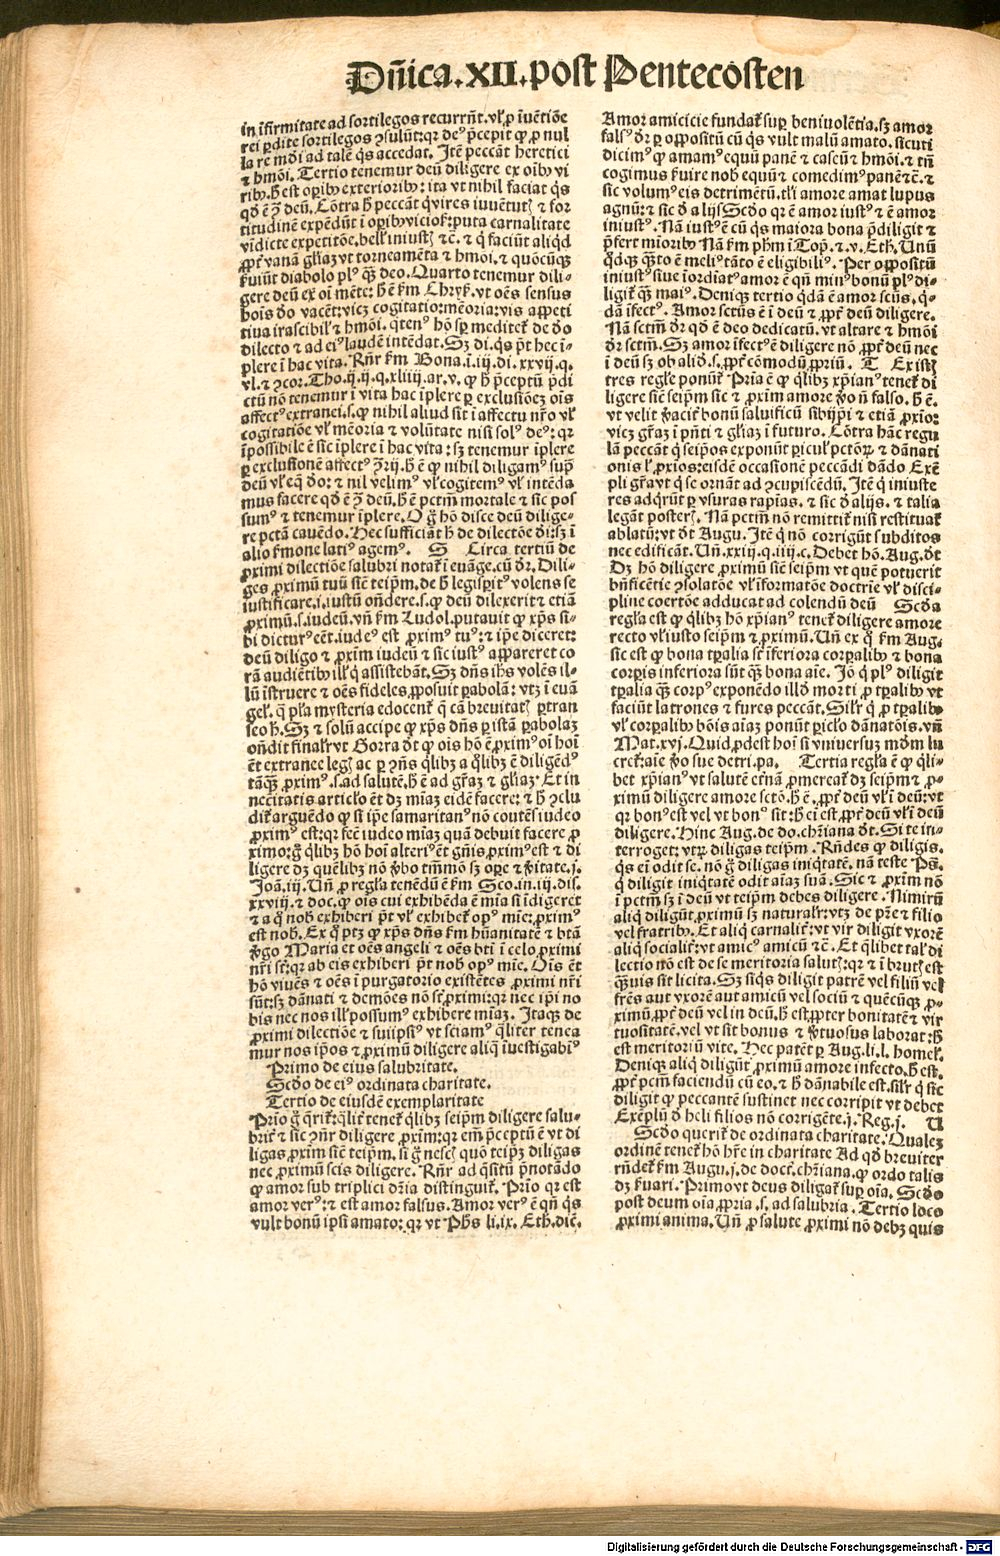 Dñica.XII.post Pentecosten
in īfirmitate ad sortilegos recurrñt. vł ꝓ īuētiōe
rei ꝑdite sortilegos ꝯsulūt: qr deꝰ p̄cepit ꝙ ꝓ nul
la re mdi ad talē q̄s accedat. Itē peccāt heretici
⁊ hmōi. Tertio tenemur deū diligere ex oībꝰ vi
ribꝰ. h̄ est oꝑibꝰ exterioribꝰ: ita vt nihil faciat q̄s
qd ē ꝯ̄ deū. Cōtra h̄ peccāt q̄ vires iuuētut ⁊ for
titudinē expēdūt ī oꝑibꝰ viciosꝭ: puta carnalitate
vīdicte expetitōe. bellꝭ iniustꝭ ⁊c̄. ⁊ q̄ faciūt aliqd
ꝓpt̄ vanā gl̄iaꝫ vt torneamēta ⁊ hmōi. ⁊ quōcūqꝫ
ẜuiūt diabolo plꝰ qꝫ deo. Quarto tenemur dili-
gere deū ex oī mēte: h̄ ē ẜm Chryſ. vt oēs sensus
hoīs do vacēt: vicꝫ cogitatio: mēoria: vis appeti
tiua irascibilꝭ ⁊ hmōi. qtenꝰ hō sꝑ meditet̄ de do
dilecto ⁊ ad eiꝰ laudē intēdat. Sꝫ di. qs p̄t hec ī-
plere ī hac vita. Rn̄r ẜm Bona. i. iij. di. xxvij. q.
vl. ⁊ ꝯcor. Tho. ij. ij. q. xliiij. ar. v. ꝙ h̄ p̄ceptū p̄di
ctū nō tenemur ī vita hac īplere ꝑ exclusiōeꝫ oīs
affectꝰ extranei. s. ꝙ nihil aliud sit ī affectu nr̄o vł
cogitatiōe vł mēoria ⁊ volūtate nisi solꝰ deꝰ: qr
īpossibile ē sic īplere ī hac vita: sꝫ tenemur īplere
ꝑ exclussionē affectꝰ ꝯ̄rij. h̄ ē ꝙ nihil diligamꝰ supꝰ
deū vł eq̄ do: ⁊ nil velimꝰ vł cogitemꝰ vł intēda
mus facere qd ē ꝯ̄ deū. h̄ ē pctm̄ mortale ⁊ sic pos
sumꝰ ⁊ tenemur īplere. O g̊ hō disce deū dilige-
re pctā cauēdo. Hec sufficiāt h̄ de dilectōe di: sꝫ ī
alio ẜmone latiꝰ agemꝰ. S Circa tertiū de
ꝓximi dilectiōe salubri notat̄ ī euāge. cū dr̄. Dili-
ges ꝓximū tuū sic̄ teip̄m. de h̄ legisꝑitꝰ volens se
iustificare. i. iustū on̄dere. s. ꝙ deū dilexerit ⁊ etiā
ꝓximū. s. iudeū. vn̄ ẜm Ludol. putauit ꝙ xp̄s si-
bi dicturꝰ eēt. iudeꝰ est ꝓximꝰ tuꝰ: ⁊ ip̄e diceret:
deū diligo ⁊ ꝓxim̄ iudeū ⁊ sic iustꝰ appareret co
rā audiētibꝰ illꝭ q̄ assistebāt. Sꝫ dn̄s ih̄s volēs il-
lū īstruere ⁊ oēs fideles, ꝓposuit ꝑabolā: vtꝫ ī euā
gel̄. q̄ pl̄a mysteria edocent̄ q̄ cā breuitatꝭ ꝑtran
seo h̄. Sꝫ ⁊ solū accipe ꝙ xp̄s dn̄s ꝑ istā ꝑabolaꝫ
on̄dit finalr̄ vt Gorra dt̄ ꝙ oīs hō ē ꝓximꝰ oī hoī
ēt extranee legꝭ ac ꝑ ꝯn̄s q̄libꝫ a q̄libꝫ ē diligēdꝰ
tāqꝫ ꝓximꝰ. s. ad salutē. h̄ ē ad gr̄aꝫ ⁊ gl̄iaꝫ. Et in
necītatis articl̄o ēt dꝫ mīaꝫ eidē facere: ⁊ h̄ ꝯclu
dit̄ arguēdo ꝙ si ip̄e samaritanꝰ nō coutēs iudeo
ꝓximꝰ est: qr fec̄ iudeo mīaꝫ quā debuit facere ꝓ
ximo: g̊ q̄libꝫ hō hoī alteriꝰ ēt gn̄is ꝓximꝰ est ⁊ di
ligere dꝫ quēlibꝫ nō v̄bo tm̄mō sꝫ oꝑe ⁊ v̄itate. j.
Joā. iij. Vn̄ ꝓ regl̄a tenēdū ē ẜm Sco. in. iij. dis.
xxviij. ⁊ doc. ꝙ oīs cui exhibēda ē mīa si īdigeret
⁊ a q̄ nob̄ exhiberi p̄t vł exhibet̄ opꝰ mīe: ꝓximꝰ
est nob̄. Ex q̄ ptꝫ ꝙ xp̄s dn̄s ẜm hūanitatē ⁊ btā
v̄go Maria et oēs angeli ⁊ oēs bti ī celo ꝓximi
nr̄i st̄: qr ab eis exhiberi p̄t nob̄ opꝰ mīe. Oīs ēt
hō viuēs ⁊ oēs ī purgatorio existētes, ꝓximi nr̄i
sūt: sꝫ dānati ⁊ demōes nō st̄ ꝓximi: qr nec ip̄i no
bis nec nos illꝭ possumꝰ exhibere mīaꝫ. Itaqꝫ de
ꝓximi dilectiōe ⁊ suiipsiꝰ vt sciamꝰ q̄liter tenea
mur nos ip̄os ⁊ ꝓximū diligere aliq̄ īuestigabīꝰ
Primo de eius salubritate.
Scdo de eiꝰ ordinata charitate.
Tertio de eiusdē exemplaritate
Prīo g̊ q̄rit̄: q̄lit̄ tenet̄ q̄libꝫ seip̄m diligere salu-
brit̄ ⁊ sic ꝯn̄r diligere ꝓxim̄: qr em̄ p̄ceptū ē vt di
ligas ꝓxim̄ sic̄ teip̄m. si g̊ nescꝭ quō teip̄ꝫ diligas
nec ꝓximū scis diligere. Rn̄r ad q̄sitū p̄notādo
ꝙ amor sub triplici dr̄ia distinguit̄. Prīo qr est
amor verꝰ: ⁊ est amor falsus. Amor verꝰ ē qn̄ q̄s
vult bonū ip̄si amato: qr vt Ph̄s li. ix. Eth. dic̄.
Amor amicicie fundat̄ suꝑ beniuolētia. sꝫ amor
falsꝰ dr̄ ꝑ oppositū cū q̄s vult malū amato. sicuti
dicimꝰ ꝙ amamꝰ equū panē ⁊ caseū ⁊ hmōi. ⁊ tn̄
cogimus ẜuire nob̄ equū ⁊ comedimꝰ panē ⁊c̄. ⁊
sic volumꝰ eis detrimētū. tl̄i amore amat lupus
agnū: ⁊ sic d̄ alijs Scdo qr ē amor iustꝰ ⁊ ē amor
iniustꝰ. Nā iustꝰ ē cū q̄s maiora bona p̄diligit ⁊
p̄fert mīoribꝰ Nā ẜm ph̄m ī Top. ⁊. v. Eth. Unū
qdqꝫ qꝫto ē meliꝰ tāto ē eligibiliꝰ. Per oppositū
iniustꝰ siue īordīatꝰ amor ē qn̄ minꝰ bonū plꝰ di-
ligit̄ qꝫ maiꝰ. Deniqꝫ tertio qdā ē amor sctūs, q̄-
dā īfectꝰ. Amor sctūs ē ī deū ⁊ ꝓpt̄ deū diligere.
Nā sctm̄ dr̄ qd ē deo dedicatū. vt altare ⁊ hmōi
dr̄ sctm̄. Sꝫ amor īfectꝰ ē diligere nō ꝓpt̄ deū nec
ī deū sꝫ ob alid. s. ꝓpt̄ cōmodū ꝓpriū. T Existꝭ
tres regl̄e ponūt̄ Prīa ē ꝙ q̄libꝫ xp̄ianꝰ tenet̄ di
ligere siē seip̄m sic ⁊ ꝓxim̄ amore v̄o n̄ falso. h̄ ē.
vt velit v̄acit̄ bonū saluificū sibijp̄i ⁊ etiā ꝓxīo:
vicꝫ gr̄aꝫ ī pn̄ti ⁊ gl̄iaꝫ ī futuro. Cōtra hāc regu
lā peccāt q̄ seip̄os exponūt ꝑiculꝭ pctōꝝ ⁊ dānati
onis l̄ ꝓxīos: eisdē occasiōne peccādi dādo Exē
pli gr̄a vt q̄ se ornāt ad ꝯcupiscēdū. Itē q̄ iniuste
res adqrūt ꝑ vsuras rapīas. ⁊ sic d̄ alijs. ⁊ talia
legāt posterꝭ. Nā pctm̄ nō remittit̄ nisi restituat̄
ablatū: vt dt̄ Augu. Itē q̄ nō corrigūt subditos
nec edificāt. Un̄. xxiij. q. iiij. c. Debet hō. Aug. dt̄
Dꝫ hō diligere ꝓximū sic̄ seip̄m vt quē potuerit
bn̄ficētie ꝯsolatōe vł īformatōe doctrīe vł disci-
pline coertōe adducat ad colendū deū Scda
regl̄a est ꝙ q̄libꝫ hō xp̄ianꝰ tenet̄ diligere amore
recto vł iusto seip̄m ⁊ ꝓximū. Un̄ ex q̄ ẜm Aug.
sic est ꝙ bona tꝑalia st̄ īferiora corꝑalibꝰ ⁊ bona
corꝑis inferiora sūt qꝫ bona aīe. Jō q̄ plꝰ diligit
tꝑalia qꝫ corpꝰ exponēdo illd̄ morti ꝓ tꝑalibꝰ vt
faciūt latrones ⁊ fures peccāt. Silr̄ q̄ ꝓ tꝑalibꝰ
vł corꝑalibꝰ bōis aīaꝫ ponūt ꝑicl̄o dānatōis. vn̄
Mat. xvj. Quid ꝓdest hoī si vniuersuꝫ mdm̄ lu
cret̄: aīe v̄o sue detri. pa. Tertia regl̄a ē ꝙ q̄li-
bet xp̄ianꝰ vt salutē et̄nā ꝓmereat̄ dꝫ seip̄m ⁊ ꝓ-
ximū diligere amore sctō. h̄ ē. ꝓpt̄ deū vł ī deū: vt
qr bonꝰ est vel vt bonꝰ sit: h̄ ei est ꝓpt̄ deū vł ī deū
diligere. Hinc Aug. de do. chr̄iana dt̄. Si te in-
terroget: vtꝝ diligas teip̄m. Rn̄des ꝙ diligis.
q̄s ei odit se. nō g̊ diligas iniqtatē. nā teste Ps̄.
q̄ diligit iniqtatē odit aīaꝫ suā. Sic ⁊ ꝓxim̄ nō
ī pctm̄ sꝫ ī deū vt teip̄m debes diligere. Nimirū
aliq̄ diligūt ꝓximū sꝫ naturalr̄: vtꝫ de pr̄e ⁊ filio
vel fratribꝰ. Et aliq̄ carnalit̄: vt vir diligit vxorē
aliq̄ socialit̄: vt amicꝰ amicū ⁊c̄. Et q̄libet tal̄ di
lectio nō est de se meritoria salutꝭ: qr ⁊ ī brutꝭ est
qꝫuis sit licita. Sꝫ siq̄s diligit patrē vel filiū vel
fr̄ēs aut vxorē aut amicū vel sociū ⁊ quēcūqꝫ ꝓ-
ximū, ꝓpt̄ deū vel in deū. h̄ est, ꝓpter bonitatē ⁊ vir
tuositatē. vel vt sit bonus ⁊ v̄tuosus laborat: h̄
est meritoriū vite. Hec patēt ꝑ Aug. li. l. homel̄.
Deniqꝫ aliq̄ diligūt ꝓximū amore infecto. h̄ est.
ꝓpt̄ pctm̄ faciendū cū eo. ⁊ h̄ dānabile est. silr̄ q̄ sic̄
diligit ꝙ peccantē sustinet nec corripit vt debet
Exēplū d̄ heli filios nō corrigēte. j. Reg. j. U
Scdo querit̄ de ordinata charitate. Qualeꝫ
ordinē tenet̄ hō hr̄e in charitate Ad qd breuiter
rn̄det̄ ẜm Augu. j. de doct. chr̄iana. ꝙ ordo talis
dꝫ ẜuari. Primo vt deus diligat̄ suꝑ oīa. Scdo
post deum oīa ꝓpria. s. ad salubria. Tertio loco
ꝓximi anima. Un̄ ꝓ salute ꝓximi nō debꝫ quis
Digitalisierung gefördert durch die Deutsche Forschungsgemeinschaft - DFG